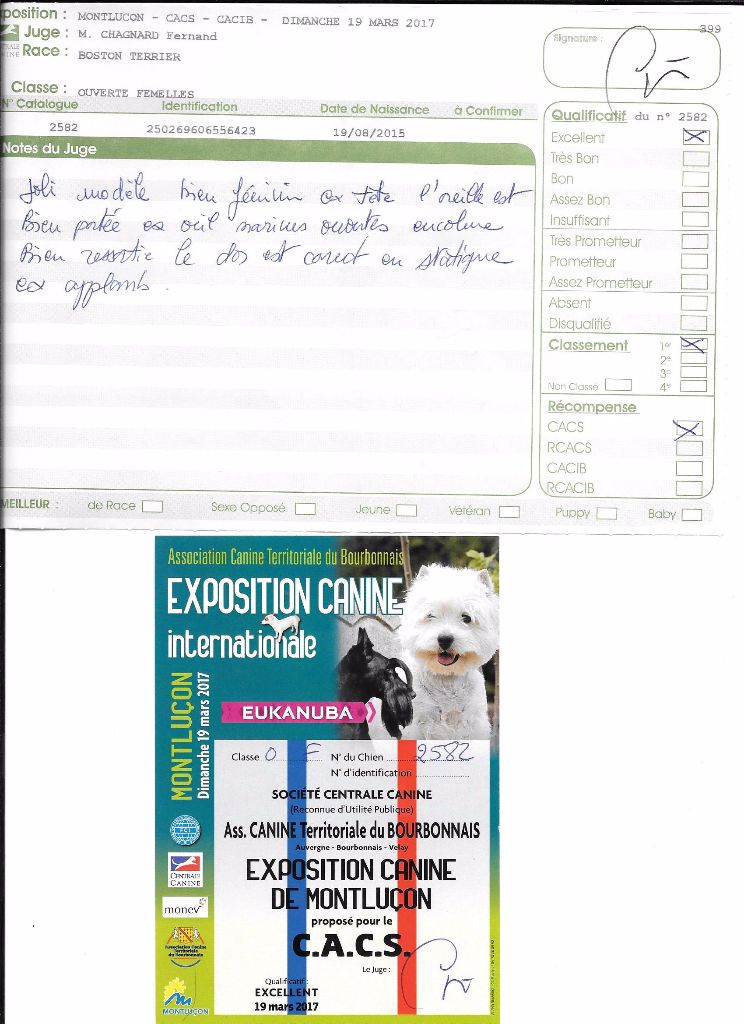 position : MONTLUCON - CACS - CACIB - DIMANCHE 19 MARS 2017
Juge : M. CHAGNARD Fernand
Race : BOSTON TERRIER
Classe : OUVERTE FEMELLES
399
Signature :
N° Catalogue Identification Date de Naissance à Confirmer
2582 250269606556423 19/08/2015
Notes du Juge
Joli modèle bien féminin ex tete l'oreille est
Bien portée ex oeil narines ouvertes encolure
Bien ressortie le dos est correct en statique
ex applomb.
Qualificatif du n° 2582
Excellent
Très Bon
Bon
Assez Bon
Insuffisant
Très Prometteur
Prometteur
Assez Prometteur
Absent
Disqualifié
Classement 1er
2e
3e
Non Classé 4e
Récompense
CACS
RCACS
CACIB
RCACIB
MEILLEUR : de Race Sexe Opposé Jeune Vétéran Puppy Baby
Association Canine Territoriale du Bourbonnais
EXPOSITION CANINE
internationale
MONTLUÇON
Dimanche 19 mars 2017
EUKANUBA
Classe O F N° du Chien 2582
N° d'identification
SOCIÉTÉ CENTRALE CANINE
(Reconnue d'Utilité Publique)
Ass. CANINE Territoriale du BOURBONNAIS
Auvergne - Bourbonnais - Velay
EXPOSITION CANINE
DE MONTLUÇON
proposé pour le
C.A.C.S.
Le Juge :
Qualificatif :
EXCELLENT
19 mars 2017
FCI
CENTRALE
CANINE
monev
Association Canine
Territoriale du
Bourbonnais
MONTLUÇON